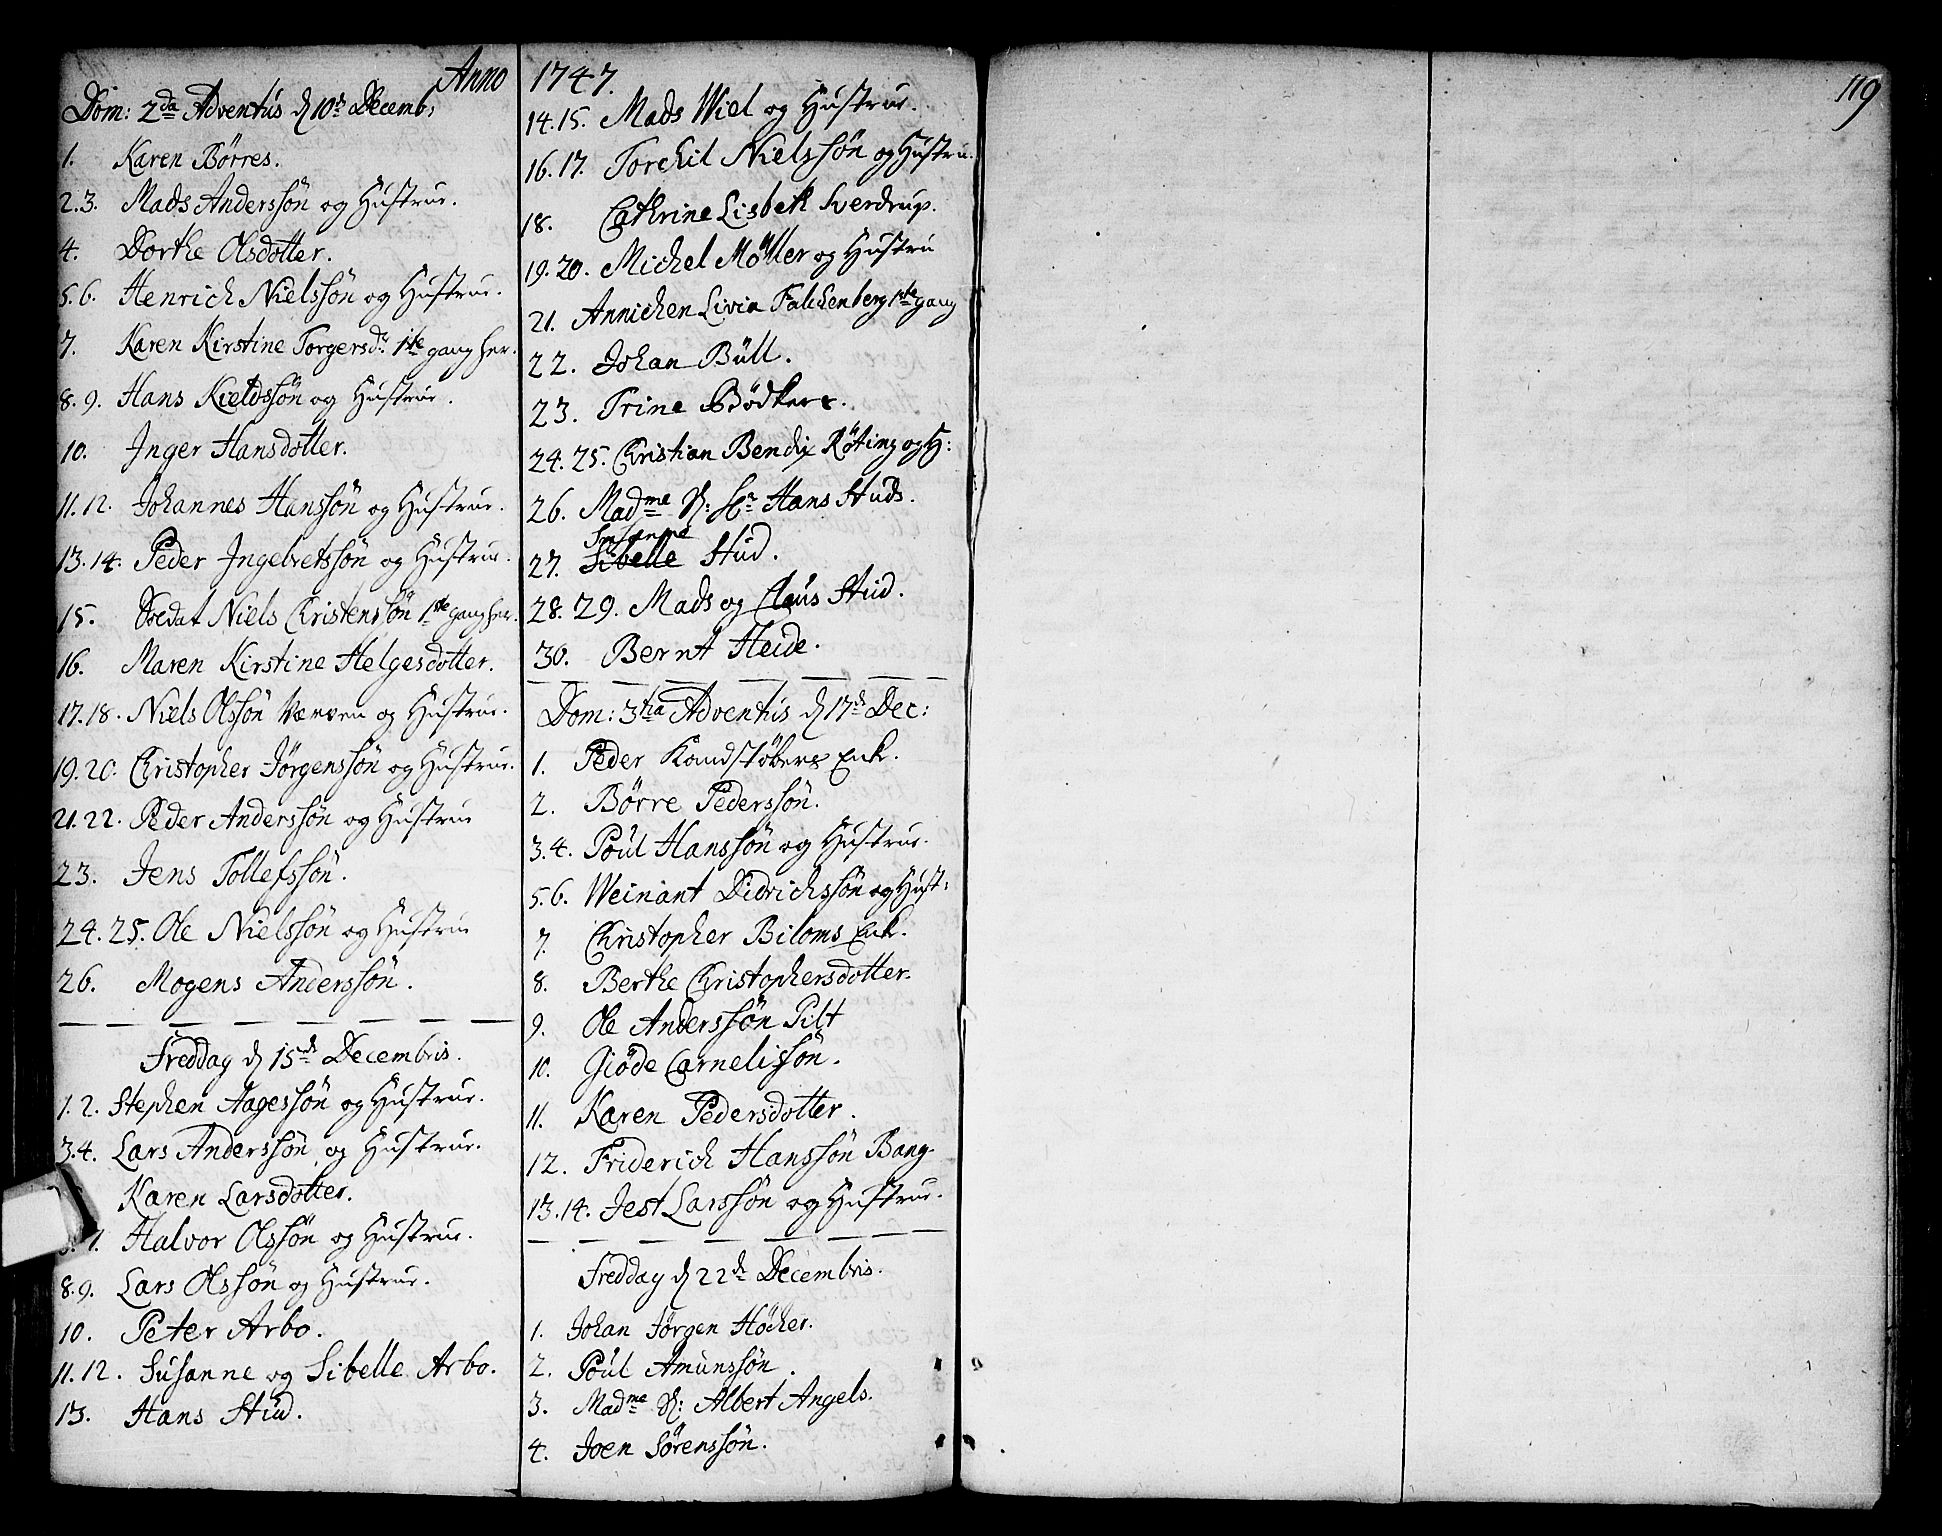 Anno 1747.
Dom: 2da Adventus d 10de Decemb:
1. Karen Börres.
2.3. Mads Anderssön og Hustrue.
4. Dorthe Olsdotter.
5.6. Henrich Nielssön og Hustrue.
7. Karen Kirstine Torgersdr. 1te gang her.
8.9. Hans Kieldssön og Hustrue.
10. Inger Hansdotter.
11.12. Johannes Hanssön og Hustrue.
13.14. Peder Ingelvetssön og Hustrue.
15. Soldat Niels Christenssön 1te gang her.
16. Maren Kirstine Helgesdotter.
17.18. Niels Olssön Værven og Hustrue.
19.20. Christopher Jörgenssön og Hustrue.
21.22. Peder Anderssön og Hustrue
23. Jens Tollefssön.
24.25. Ole Nielssön og Hustrue
26. Mogens Anderssön.
Freddag d 15de Decembris.
1.2. Stephen Aagessön og Hustrue.
3.4. Lars Anderssön og Hustrue.
Karen Larsdotter.
7. Halvor Olssön og Hustrue.
8.9. Lars Olssön og Hustrue.
10. Peter Arbo.
11.12. Susanne og Sibelle Arbo.
13. Hans Stud.
14.15. Mads Wiel og Hustrue.
16.17. Torchil Nielssön og Hustru.
18. Cathrine Lisbek Sverdrup.
19.20. Michel Möller og Hustru
21. Annichen Livia Falchenberg 1te gang
22. Johan Büll.
23. Trine Bödkers.
24.25. Christian Bendix Röting og H:
26. Madme S: Hr Hans Studs.
Susanne
27. Sibelle Stud.
28.29. Mads og Claus Stud.
30. Bernt Heide.
Dom: 3tia Adventus d 17de Dec:
1. Peder Kandstöbers Enk.
2. Börre Pederssön.
3.4. Poul Hanssön og Hustrue.
5.6. Weinant Didrichssön og Hust:
7. Christopher Biloms Enk.
8. Berthe Christophersdotter.
9. Ole Anderssön Pilt
10. Giöde Cornelissön.
11. Karen Pedersdotter.
12. Friderich Hanssön Bang.
13.14. Jest Larssön og Hustrue.
Freddag d 22de Decembris.
1. Johan Jörgen Höcher.
2. Poul Amunssön.
3. Madme S: Albert Angels.
4. Joen Sörenssön.
119